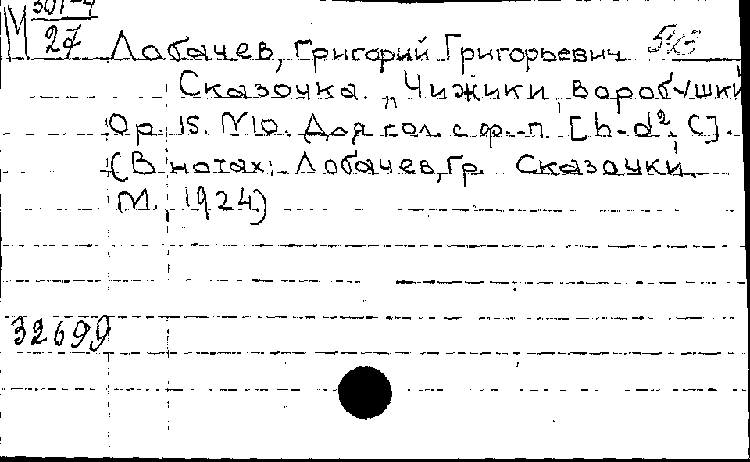 М 301-4
27
Лобачев, Григорий Григорьевич
Сказочка „Чижики, воробушки
Ор. 15. №10. Для гол. с ф.-п. [h-d², C].
(В нотах: Лобачев, Гр. Сказочки.
М., 1924)
32699